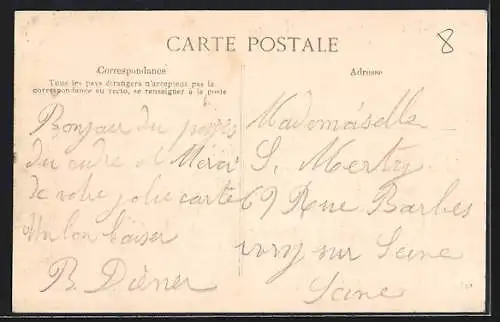 CARTE POSTALE
8
Correspondance
Tous les pays étrangers n'acceptent pas la
correspondance au recto, se renseigner à la poste
Bonjour du pays
du cidre et Merci
de votre jolie carte
Un bon baiser
B. Diéner
Adresse
Mademoiselle
S. Mertz
69 Rue Barbes
ivry sur Seine
Seine